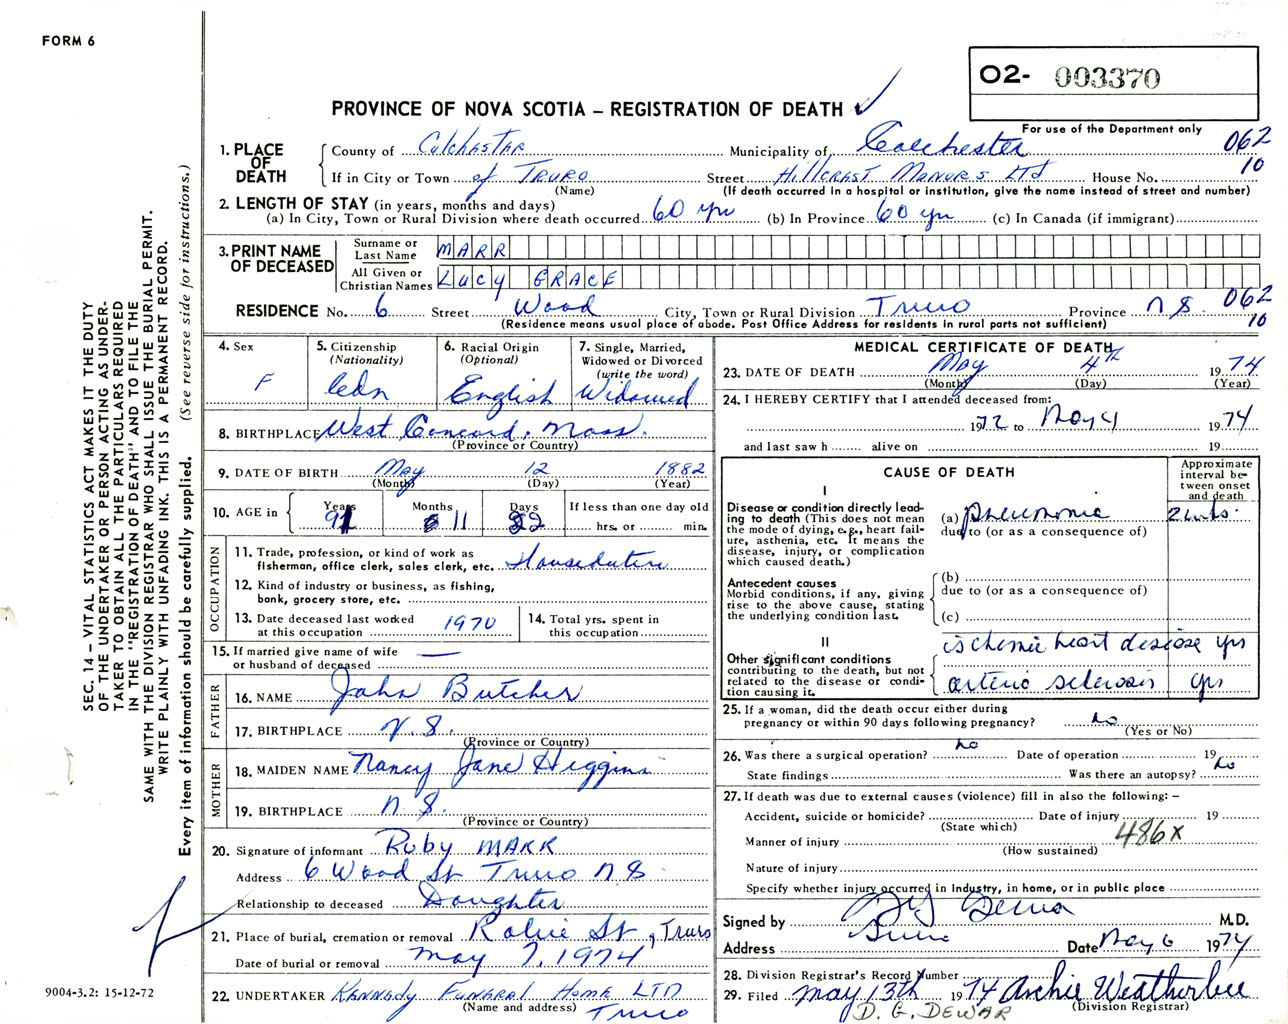 FORM 6
02- 003370
PROVINCE OF NOVA SCOTIA – REGISTRATION OF DEATH ✓
For use of the Department only
1. PLACE OF DEATH
County of Colchester Municipality of Colchester 062
If in City or Town of Truro Street Hillcrest Manors Ltd House No. 10
(Name) (If death occurred in a hospital or institution, give the name instead of street and number)
2. LENGTH OF STAY (in years, months and days)
(a) In City, Town or Rural Division where death occurred 60 yrs (b) In Province 60 yrs (c) In Canada (if immigrant)
3. PRINT NAME OF DECEASED
Surname or Last Name MARR
All Given or Christian Names LUCY GRACE
RESIDENCE No. 6 Street Wood City, Town or Rural Division Truro Province N S. 062
(Residence means usual place of abode. Post Office Address for residents in rural parts not sufficient) 10
4. Sex
F
5. Citizenship
(Nationality)
Cdn
6. Racial Origin
(Optional)
English
7. Single, Married,
Widowed or Divorced
(write the word)
Widowed
8. BIRTHPLACE West Concord, Mass.
(Province or Country)
9. DATE OF BIRTH May 12 1882
(Month) (Day) (Year)
10. AGE in Years Months Days If less than one day old
91 11 22 hrs. or min.
OCCUPATION
11. Trade, profession, or kind of work as
fisherman, office clerk, sales clerk, etc. Houseduties
12. Kind of industry or business, as fishing,
bank, grocery store, etc.
13. Date deceased last worked
at this occupation 1970
14. Total yrs. spent in
this occupation
15. If married give name of wife
or husband of deceased —
FATHER
16. NAME John Butcher
17. BIRTHPLACE N. S.
(Province or Country)
MOTHER
18. MAIDEN NAME Nancy Jane Higgins
19. BIRTHPLACE N. S.
(Province or Country)
20. Signature of informant Ruby MARR
Address 6 Wood St Truro N S
Relationship to deceased Daughter
21. Place of burial, cremation or removal Robie St, Truro
Date of burial or removal May 7, 1974
22. UNDERTAKER Kennedy Funeral Home LTD
(Name and address) Truro
MEDICAL CERTIFICATE OF DEATH
23. DATE OF DEATH May 4th 1974
(Month) (Day) (Year)
24. I HEREBY CERTIFY that I attended deceased from:
1972 to May 4 1974
and last saw h alive on 19
CAUSE OF DEATH
Approximate interval between onset and death
I
Disease or condition directly leading to death (This does not mean the mode of dying, e.g., heart failure, asthenia, etc. It means the disease, injury, or complication which caused death.)
(a) Pneumonia 2 wks.
due to (or as a consequence of)
Antecedent causes
Morbid conditions, if any, giving rise to the above cause, stating the underlying condition last.
(b)
due to (or as a consequence of)
(c)
II
Other significant conditions contributing to the death, but not related to the disease or condition causing it.
ischemic heart disease yrs
arterio sclerosis yrs
25. If a woman, did the death occur either during
pregnancy or within 90 days following pregnancy? no
(Yes or No)
26. Was there a surgical operation? no Date of operation 19
State findings Was there an autopsy? no
27. If death was due to external causes (violence) fill in also the following: –
Accident, suicide or homicide? Date of injury 19
(State which)
Manner of injury 486x
(How sustained)
Nature of injury
Specify whether injury occurred in Industry, in home, or in public place
Signed by D G Dewar M.D.
Address Truro Date May 6 1974
28. Division Registrar's Record Number
29. Filed May 13th 1974 Archie Weatherbee
(Division Registrar)
D. G. DEWAR
SEC. 14 – VITAL STATISTICS ACT MAKES IT THE DUTY
OF THE UNDERTAKER OR PERSON ACTING AS UNDER-
TAKER TO OBTAIN ALL THE PARTICULARS REQUIRED
IN THE "REGISTRATION OF DEATH" AND TO FILE THE
SAME WITH THE DIVISION REGISTRAR WHO SHALL ISSUE THE BURIAL PERMIT.
WRITE PLAINLY WITH UNFADING INK. THIS IS A PERMANENT RECORD.
Every item of information should be carefully supplied. (See reverse side for instructions.)
9004-3.2: 15-12-72